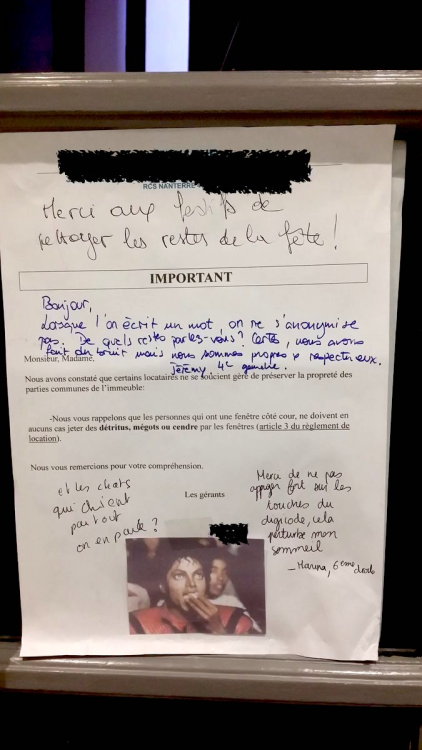 RCS NANTERRE
Merci aux festifs de
nettoyer les restes de la fête !
IMPORTANT
Bonjour,
Lorsque l'on écrit un mot, on ne s'anonymise
pas. De quels restes parlez-vous? Certes, nous avons
fait du bruit mais nous sommes propres & respectueux.
Jérémy 4e gauche.
Monsieur, Madame,
Nous avons constaté que certains locataires ne se soucient guère de préserver la propreté des
parties communes de l'immeuble:
-Nous vous rappelons que les personnes qui ont une fenêtre côté cour, ne doivent en
aucuns cas jeter des détritus, mégots ou cendre par les fenêtres (article 3 du règlement de
location).
Nous vous remercions pour votre compréhension.
Les gérants
et les chats
qui chient
partout
on en parle ?
Merci de ne pas
appuyer fort sur les
touches du
digicode, cela
perturbe mon
sommeil
- Marina, 6eme droite